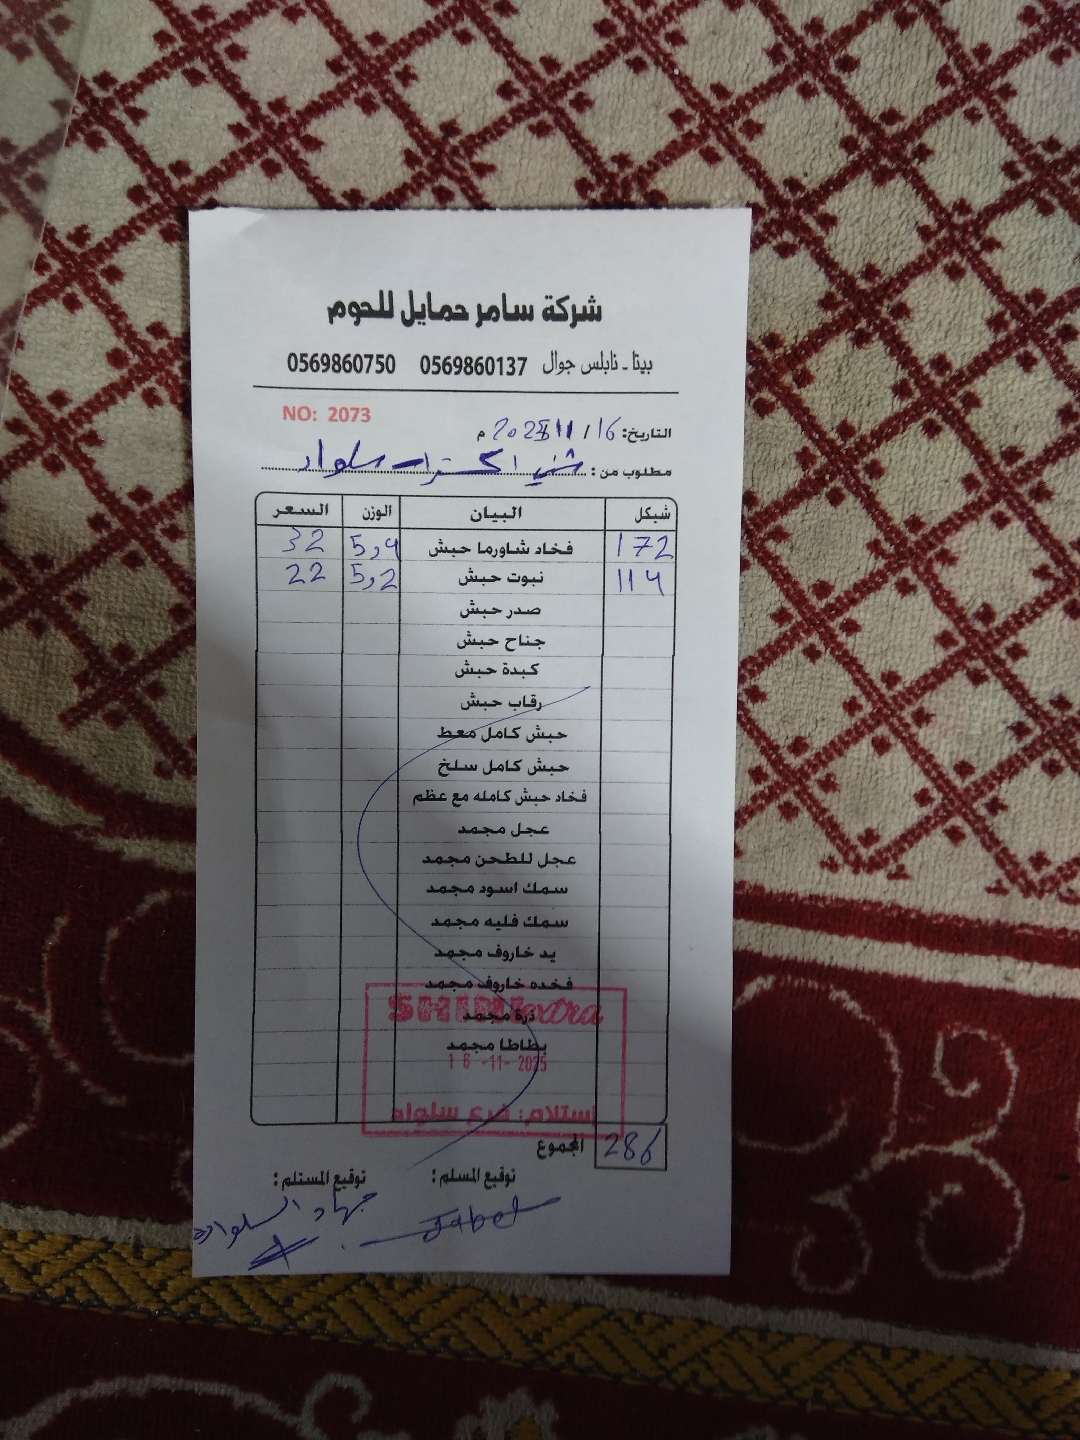 شركة سامر حمايل للحوم
بيتا - نابلس جوال 0569860137 0569860750
NO: 2073
التاريخ: 16 / 11 2025 م
مطلوب من : شني اكسترا سلواد
شيكل البيان الوزن السعر
172 فخاد شاورما حبش 5,4 32
114 نبوت حبش 5,2 22
صدر حبش
جناح حبش
كبدة حبش
رقاب حبش
حبش كامل معط
حبش كامل سلخ
فخاد حبش كامله مع عظم
عجل مجمد
عجل للطحن مجمد
سمك اسود مجمد
سمك فليه مجمد
يد خاروف مجمد
فخده خاروف مجمد
ذرة مجمد
بطاطا مجمد
SHINI extra
16 -11- 2025
إستلام: فرع سلواد
المجموع 286
توقيع المسلم : توقيع المستلم :
Jabel جهاد السلوادي